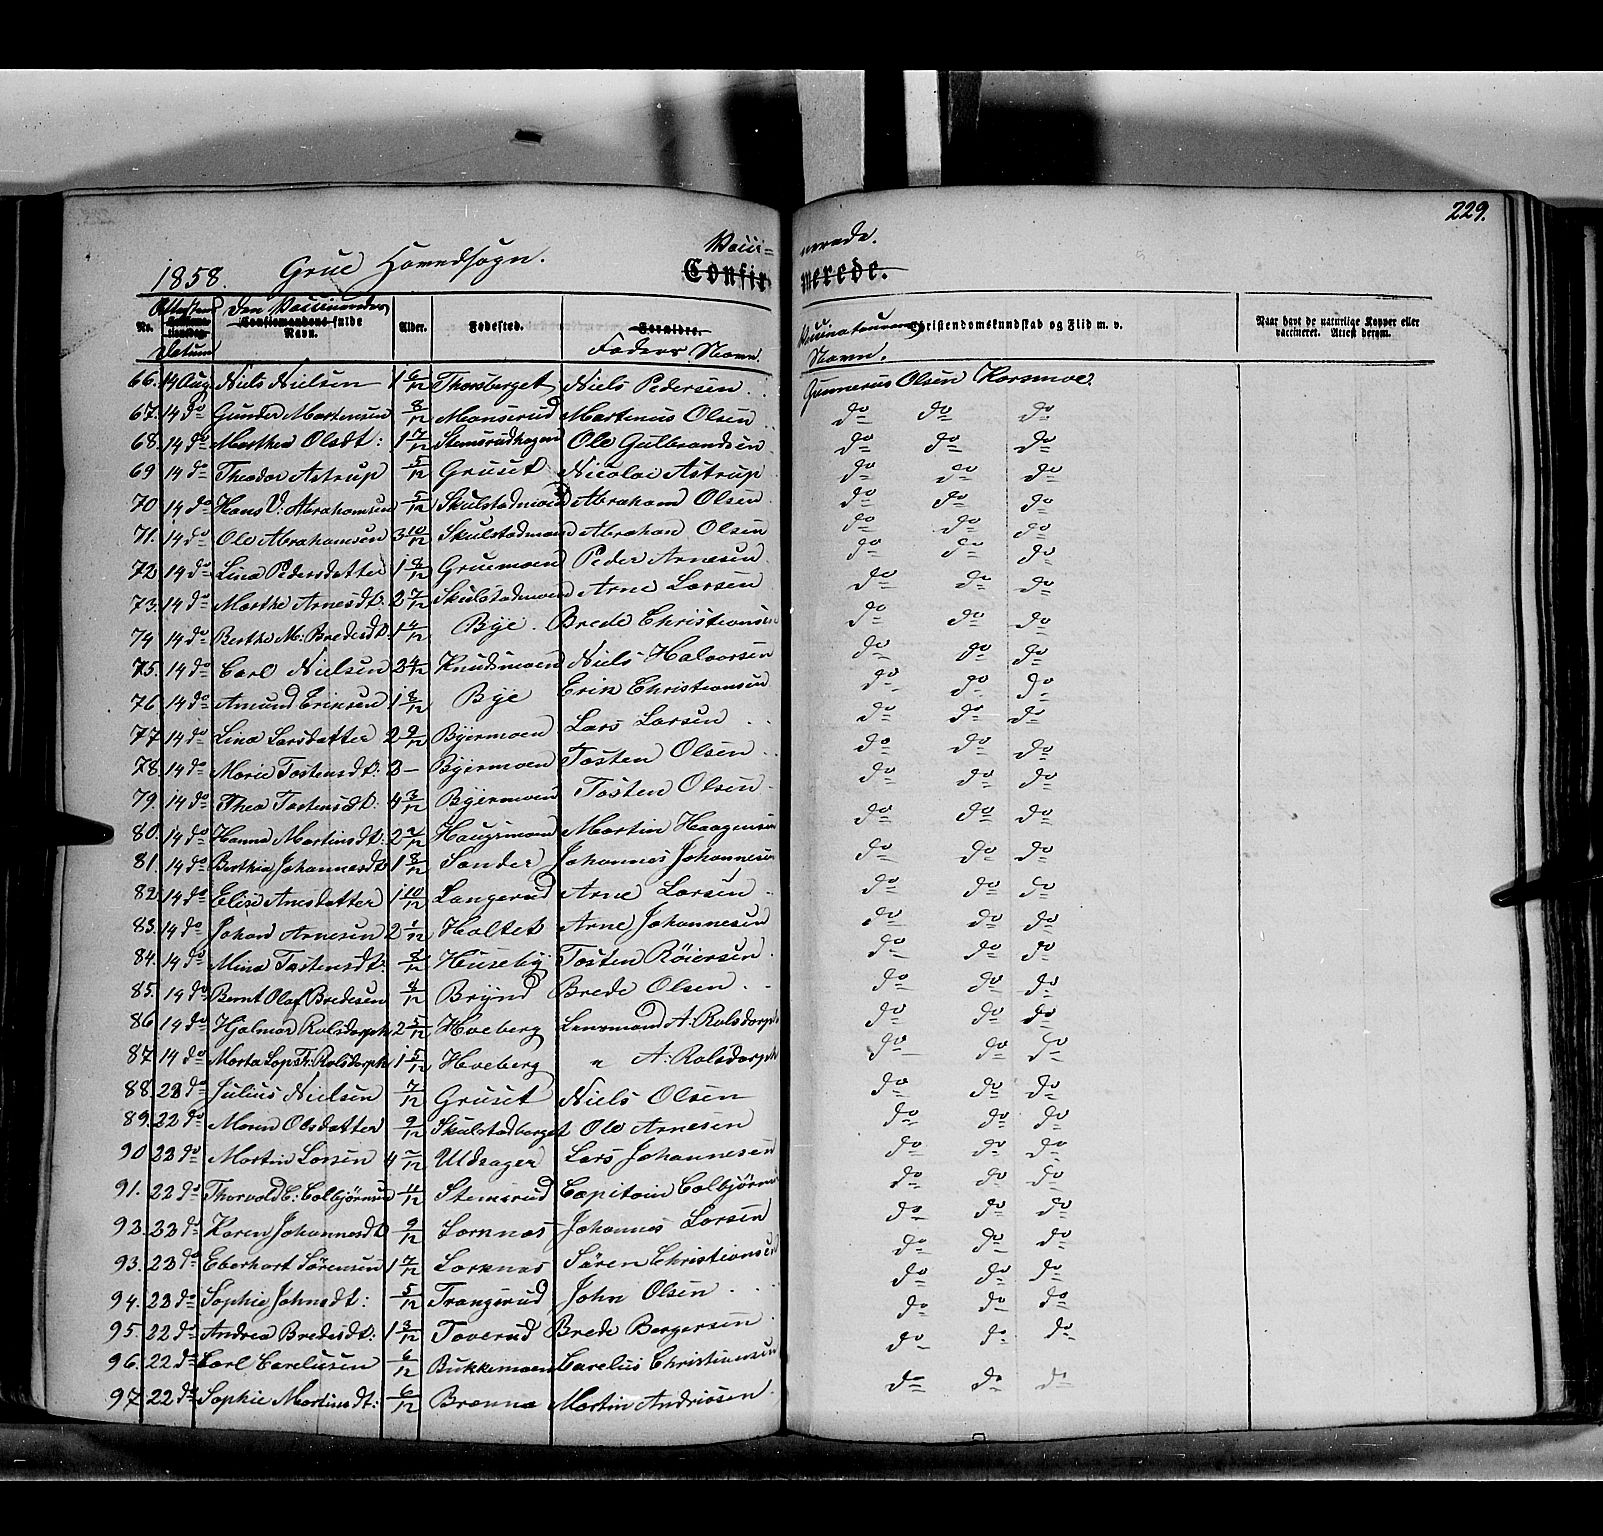 229.
1858. Grue Hovedsogn. Vacci= nerede.
Confir merede.
No. Attestens Datum Den Vaccineredes fulde Navn. Alder. Fødested. Forældre. Faders Navn. Vaccinateurens Navn. Christendomskundskab og Flid m. v. Naar havt de naturlige Kopper eller vaccineret. Attest derom.
66. 14 Aug Niels Nielsen 1 6/12 Thorsberget Niels Pedersen Gunnerus Olsen Korsmoe.
67. 14 do Gunder Martensen 8/12 Monserud Martinus Olsen do do do
68. 14 do Marthea Olsdt: 1 7/12 Stemsrudhagen Ole Gulbrandsen do do do
69 14 do Theodor Astrup 5/12 Gruset Nicolai Astrup do do do
70 14 do Hans V: Abrahamsen 5/12 Skulstadmoen Abraham Olsen do do do
71. 14 do Ole Abrahamsen 3 10/12 Skulstadmoen Abraham Olsen do do do
72 14 do Lina Pedersdatter 1 8/12 Gruemoen Peder Arnesen do do do
73. 14 do Marthe Arnesdt: 2 7/12 Skulstadmoen Arne Larsen do do do
74 14 do Berthe M: Bredesdt: 1 4/12 Bye Brede Christiansen do do do
75. 14 do Carl Nielsen 3 4/12 Knudsmoen Niels Halvorsen do do do
76 14 do Amund Eriksen 1 8/12 Bye Erik Christiansen do do do
77. 14 do Lina Larsdatter 2 9/12 Byermoen Lars Larsen do do do
78. 14 do Marie Tostensdt: 3 — Byermoen Tosten Olsen do do do
79. 14 do Thea Tostensdt: 4 3/12 Byermoen Tosten Olsen do do do
80. 14 do Hanna Martinsdt: 2 Haugsmoen Martin Haagensen do do do
81. 14 do Berthea Johannesdt 1 8/12 Sander Johannes Johannesen do do do
82. 14 do Elise Arnesdatter 1 10/12 Langerud Arne Larsen do do do
83. 14 do Johan Arnesen 2 1/12 Holtet Arne Johannesen do do do
84. 14 do Mina Tostensdt: 8/12 Huseby Tosten Röiersen do do do
85. 14 do Bernt Olaf Bredesen 8/12 Brynd Brede Olsen do do do
86 14 do Hjalmar Rolsdorph 2 5/12 Hveberg Lensmand A: Rolsdorph do do do
87 14 do Marta Sop: Rolsdorph 1 5/12 Hveberg " A: Rolsdorph do do do
88. 22 do Julius Nielsen 7/12 Gruset Niels Olsen do do do
89. 22 do Maren Olsdatter 9/12 Skulstadberget Ole Arnesen do do do
90 22 do Martin Larsen 4 Udsager Lars Johannesen do do do
91. 22 do Thorvald C: Colbjørnsen 11/12 Stemsrud Capitain Colbjørnsen do do do
92. 22 do Karen Johannesdt 9/12 Lorknas Johannes Larsen do do do
93. 22 do Eberhart Sørensen 1 7/12 Lorknas Sören Christiansen do do do
94. 22 do Sophie Johnsdt: 5/12 Trangsrud John Olsen do do do
95. 22 do Andrea Bredesdt: 1 3/12 Toverud Brede Bergersen do do do
96. 22 do Carl Careliusen 6/12 Bukkemoen Carelius Christiansen do do do
97 22 do Sophie Martinsdt: 6/12 Brenna Martin Andriasen do do do